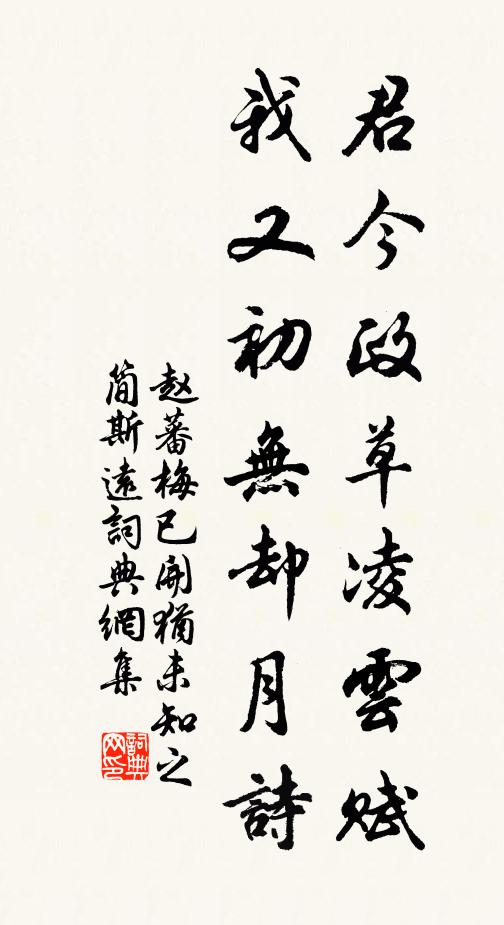 君今政草凌雲賦
我又初無却月詩
赵蕃梅已開猶未知之
简斯遠詞典網集
詞典网印